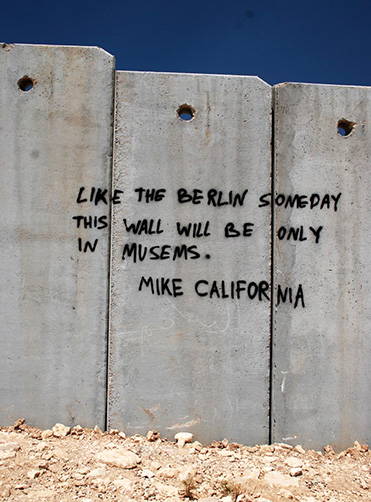 LIKE THE BERLIN SOMEDAY
THIS WALL WILL BE ONLY
IN MUSEMS.
MIKE CALIFORNIA